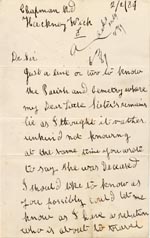 Chapman Rd
Hackney Wick
2/2/89
Dr Sir
Just a line or two to know
the Parish and Cemetery where
my dear little Sisters remains
lie as I thought it rather
unkind not knowing
at the same time you wrote
to say she was deceased
I should like to know as
you possibly could let me
know as I have a relation
who is about to travel